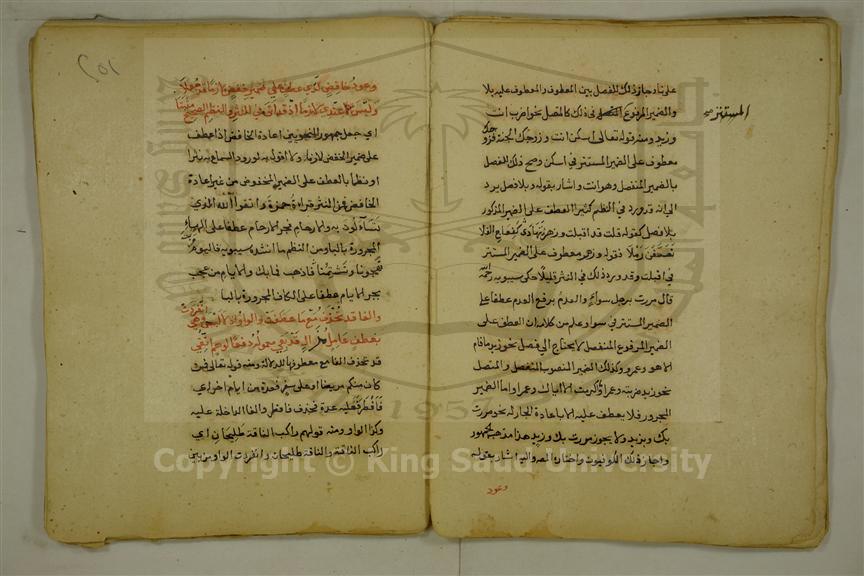 على نا وجاز ذلك للفصل بين المعطوف والمعطوف عليه بلا
والضمير المرفوع المتصل في ذلك كالمتصل نحو اضرب انت
المستتر صح
وزيد ومنه قوله تعالى اسكن انت وزوجك الجنة فزوجك
معطوف على الضمير المستتر في اسكن وصح ذلك للفصل
بالضمير المنفصل وهو انت واشار بقوله وبلا فصل يرد
الى انه قد ورد في النظم كثيرا العطف على الضمير المذكور
بلا فصل كقوله قلت اذ اقبلت وزهر تهادى كنعاج الفلا
تعسفن رملا فقوله وزهر معطوف على الضمير المستتر
في اقبلت وقد ورد ذلك في النثر قليلا حكى سيبويه رحمه الله
قال مررت برجل سواء والعدم برفع العدم عطفا على
الضمير المستتر في سواء وعلم من كلامه ان العطف على
الضمير المرفوع المنفصل لا يحتاج الى فصل نحو زيد ما قام
الا هو وعمرو وكذلك الضمير المنصوب المنفصل والمتصل
نحو زيد ضربته وعمرا وما اكرمت الا اياك وعمرا واما الضمير
المجرور فلا يعطف عليه الا باعادة الجار له نحو مررت
بك وبزيد ولا يجوز مررت بك وزيد هذا مذهب الجمهور
واجاز ذلك الكوفيون واختاره المص واليه اشار بقوله
وعود
وعود خافض لدى عطف على ضمير خفض لازما قد جعلا
وليس عندي لازما اذ قد اتى في النثر والنظم الصحيح مثبتا
اي جعل جمهور النحويين اعادة الخافض اذا عطف
على ضمير الخفض لازما ولا اقول به لورود السماع به نثرا
او نظما بالعطف على الضمير المخفوض من غير اعادة
الخافض فمن النثر قراءة حمزة واتقوا الله الذي
تساءلون به والارحام بجر الارحام عطفا على الهاء
المجرورة بالباء ومن النظم ما انشده سيبويه فاليوم
تهجونا وتشتمنا فاذهب فما بك والايام من عجب
بجر الايام عطفا على الكاف المجرورة بالبا
والفا قد تحذف مع ما عطفت والواو اذ لا لبس وهي انفردت
بعطف عامل مزال قد بقي معموله دفعا لوهم اتقي
قد تحذف الفا مع معطوفها للدلالة ومنه قوله تعالى فمن
كان منكم مريضا او على سفر فعدة من ايام اخر اي
فافطر فعليه عدة فحذف فافطر والفا الداخلة عليه
وكذا الواو ومنه قولهم راكب الناقة طليحان اي
راكب الناقة والناقة طليحان وانفردت الواو من بين
Copyright © King Saud University
1957